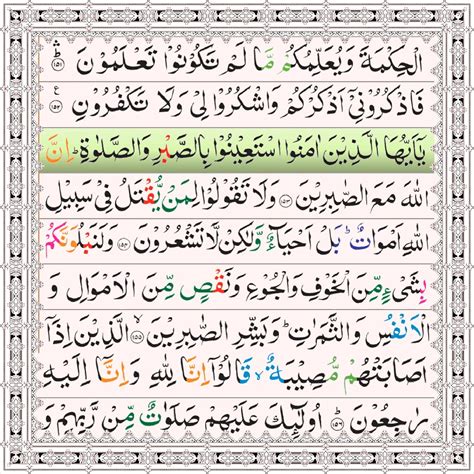 الۡحِكۡمَةَ وَيُعَلِّمُكُمۡ مَّا لَمۡ تَكُوۡنُوۡا تَعۡلَمُوۡنَ ۛ﴿۱۵۱﴾
فَاذۡكُرُوۡنِىۡٓ اَذۡكُرۡكُمۡ وَاشۡكُرُوۡا لِىۡ وَلَا تَكۡفُرُوۡنِ ﴿۱۵۲﴾ ع
يٰٓاَيُّهَا الَّذِيۡنَ اٰمَنُوا اسۡتَعِيۡنُوۡا بِالصَّبۡرِ وَالصَّلٰوةِ ؕ اِنَّ
اللّٰهَ مَعَ الصّٰبِرِيۡنَ ﴿۱۵۳﴾ وَلَا تَقُوۡلُوۡا لِمَنۡ يُّقۡتَلُ فِىۡ سَبِيۡلِ
اللّٰهِ اَمۡوَاتٌ ؕ بَلۡ اَحۡيَآءٌ وَّلٰكِنۡ لَّا تَشۡعُرُوۡنَ ﴿۱۵۴﴾ وَلَنَبۡلُوَنَّكُمۡ
بِشَىۡءٍ مِّنَ الۡخَوۡفِ وَالۡجُوۡعِ وَنَقۡصٍ مِّنَ الۡاَمۡوَالِ وَ
الۡاَنۡفُسِ وَالثَّمَرٰتِ ؕ وَبَشِّرِ الصّٰبِرِيۡنَ ۙ﴿۱۵۵﴾ الَّذِيۡنَ اِذَآ
اَصَابَتۡهُمۡ مُّصِيۡبَةٌ ۙ قَالُوۡٓا اِنَّا لِلّٰهِ وَاِنَّآ اِلَيۡهِ
رٰجِعُوۡنَ ؕ﴿۱۵۶﴾ اُولٰٓئِكَ عَلَيۡهِمۡ صَلَوٰتٌ مِّنۡ رَّبِّهِمۡ وَ